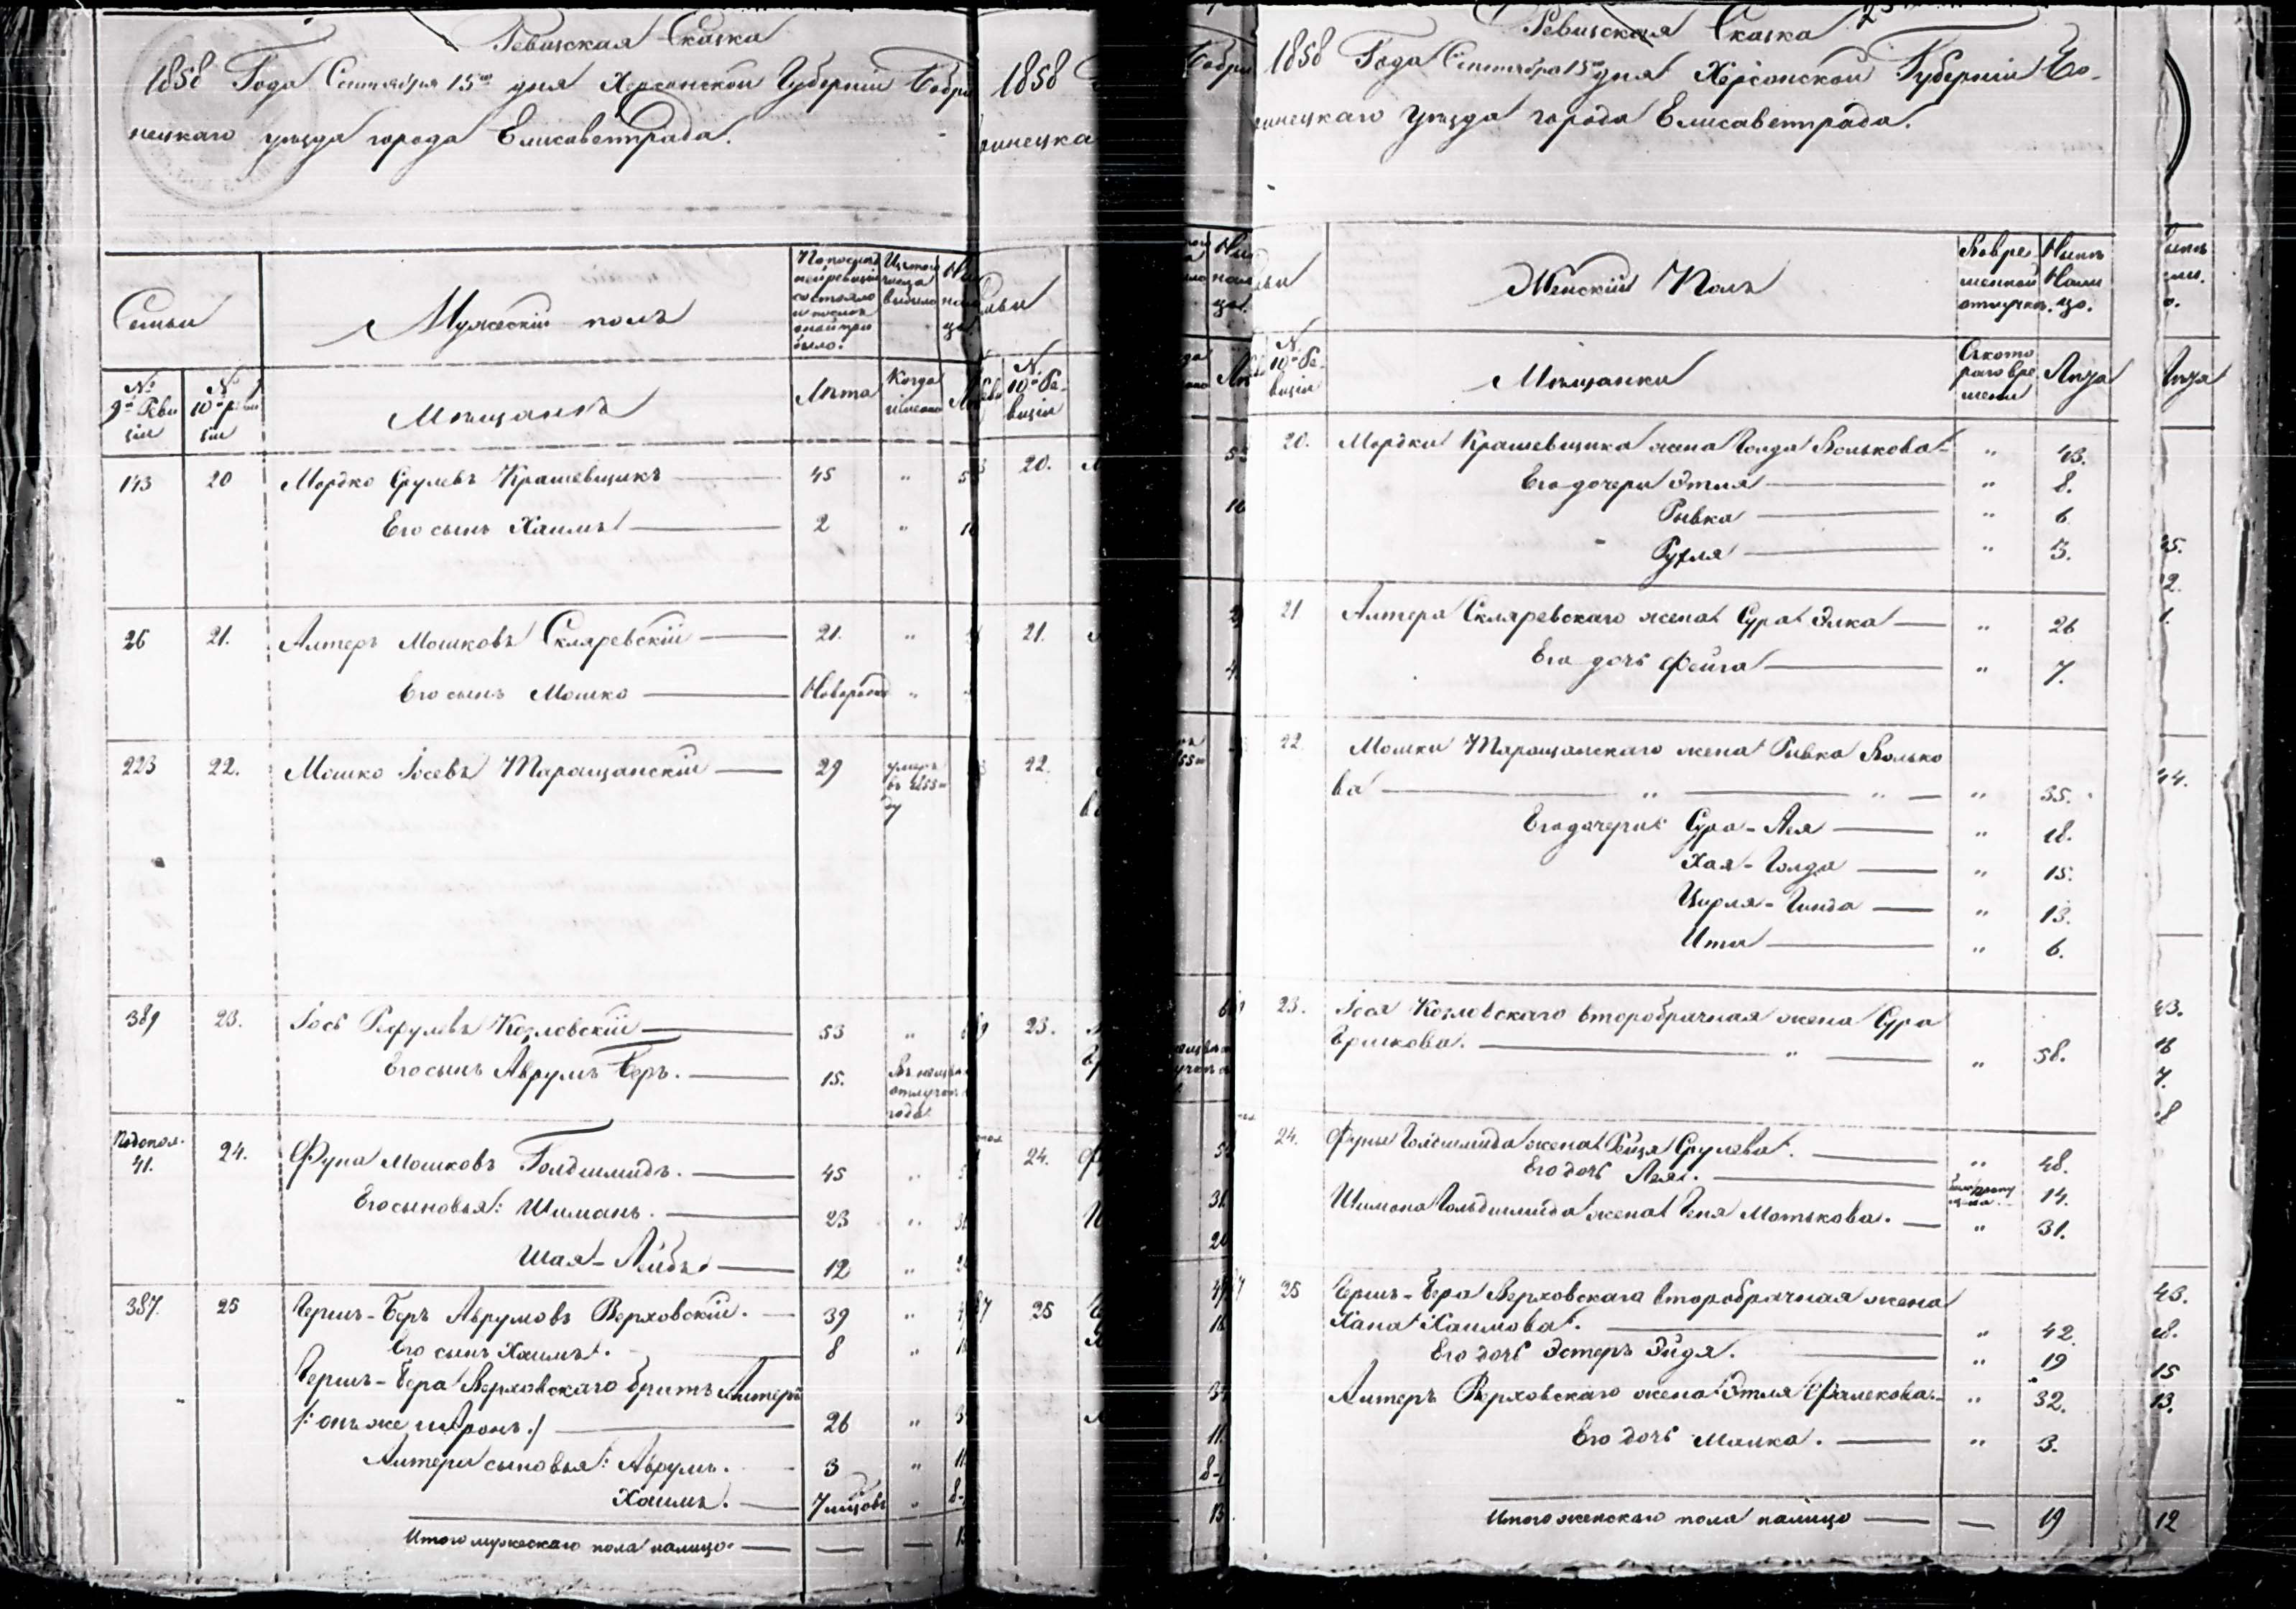 Ревизская Сказка
1858 Года Сентября 15го дня Херсонской Губерніи Бобри
нецкаго уѣзда города Елисаветграда.
Семьи
Мужескій полъ
По послѣд
ней ревизіи
состояло
и послѣ
оной при
было.
Изъ того
числа
выбыло
№
9й Реви
зіи
№
10й реви
зіи
Мѣщанъ
Лѣта
Когда
именно
143 20 Мордко Срулевъ Крашевщикъ 45 "
Его сынъ Хаимъ 2 "
26 21. Алтеръ Мошковъ Скляревскій 21. "
Его сынъ Мошко Новорожд "
223 22. Мошко Іосевъ Таращанскій 29 умеръ
въ 1855м
ду
389 23. Іось Рефулевъ Козловскій 53 "
Его сынъ Аврумъ Беръ. 15.
отлучкѣ
года
41. 24. Фуна Мошковъ Голдшмидъ. 45 "
Его сыновья: Шиманъ. 23 "
Шая-Лейбъ 12 "
387. 25 Гершъ-Беръ Аврумовъ Верховскій. 39 "
Его сынъ Хаимъ. 8 "
Гершъ-Бера Верховскаго братъ Алтеръ
/: онъ же и Аронъ :/ 26 "
Алтера сыновья: Аврумъ. 3 "
Хаимъ. 7 мѣсцовъ "
Итого мужескаго пола налицо — —
1858
ринецка
№
10й Ре-
визіи
20.
21.
22.
23.
24.
25
Ревизская Сказка
1858 Года Сентября 15го дня Херсонской Губерніи Бо-
ринецкаго уѣзда города Елисаветграда.
Женскій Полъ
Вовре
менной
отлучкѣ.
Нынѣ
Нали
цо.
№
10й Ре-
визіи
Мѣщанки
Съ кото
раго вре
мени
Лѣта
20. Мордки Крашевщика жена Голда Волькова " 43.
Его дочери Этля " 8.
Рывка " 6
Рухля " 3.
21 Алтера Скляревскаго жена Сура Элка " 26
Его дочь Фейга " 7.
22. Мошки Таращанскаго жена Рывка Волько
ва " " " 35.
Его дочери: Сура-Лея " 18.
Хая-Голда " 15.
Цирля-Гинда " 13.
Ита " 6.
23. Іося Козловскаго второбрачная жена Сура
Ершкова. " " 58.
24. Фуны Голдшмида жена Рейзя Срулева. " 48.
Его дочь Лея. 14.
Шимона Гольдшмида жена Геня Мотькова. " 31.
25 Гершъ-Бера Верховскаго второбрачная жена
Хана Хаимова. " 42
Его дочь Эстеръ Эйдя. " 19
Алтеръ Верховскаго жена Этля Фалекова. " 32.
Его дочь Малка. " 3.
Итого женскаго пола налицо — 19